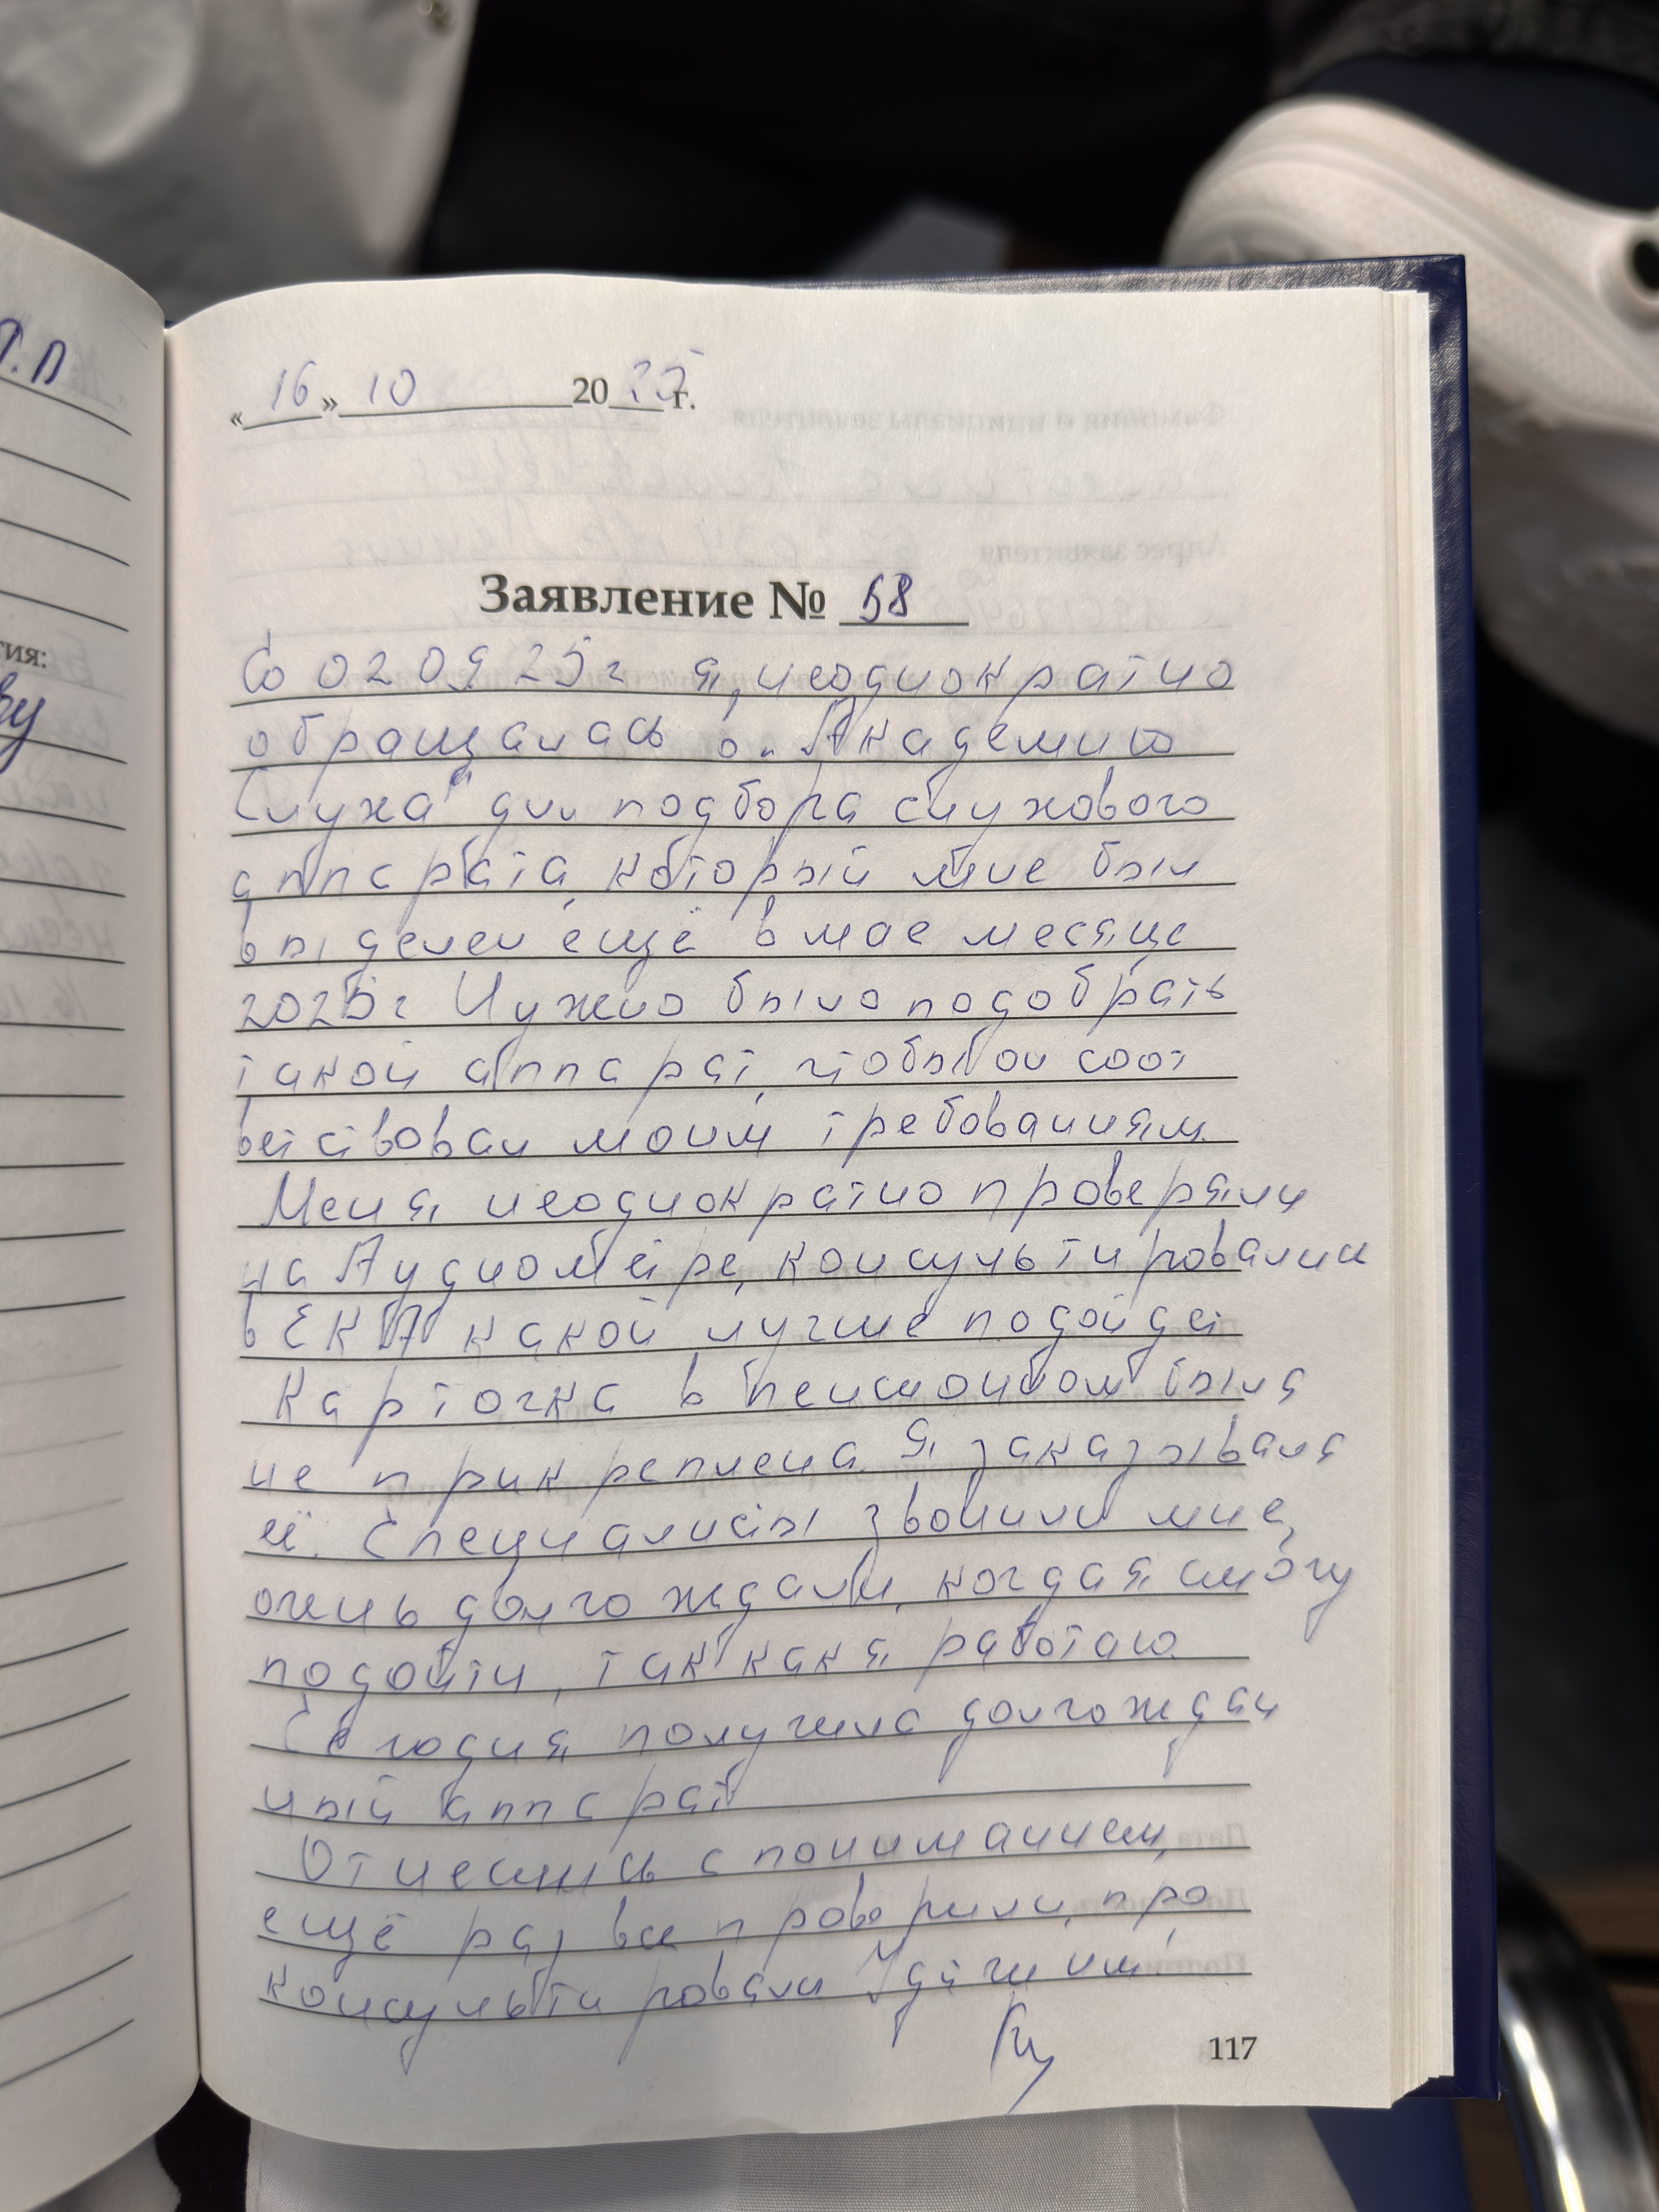 Т.П
тия:
ву
« 16 » 10 2025 г.
Заявление № 58
Со 02 09 25 г я, неоднократно
обращалась в „Академию
Слуха" для подбора слухового
аппарата, который мне был
выделен ещё в мае месяце
2025г Нужно было подобрать
такой аппарат, чтобы он соот
ветствовал моим требованиям.
Меня неоднократно проверяли
на Аудиометре, консультировались
в ЕКА какой лучше подойдет
Карточка в пенсионном была
не прикреплена. Я заказывала
её. Специалисты звонили мне,
очень долго ждали, когда я смогу
подойти, так как я работаю.
Сегодня получила долгождан
ный аппарат
Отнеслись с пониманием,
ещё раз все проверили, про
консультировали Удачи им!
117